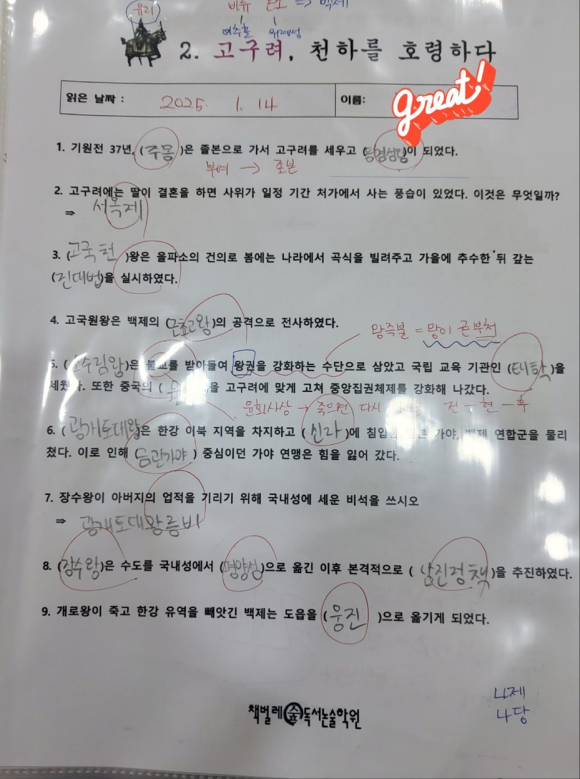 유리
비류 온조 => 백제
미추홀 위례성
2. 고구려, 천하를 호령하다
읽은 날짜 : 2025. 1. 14 이름:
great!
1. 기원전 37년, (주몽)은 졸본으로 가서 고구려를 세우고 (동명성왕)이 되었다.
부여 → 졸본
2. 고구려에는 딸이 결혼을 하면 사위가 일정 기간 처가에서 사는 풍습이 있었다. 이것은 무엇일까?
⇒ 서옥제
3. (고국천)왕은 을파소의 건의로 봄에는 나라에서 곡식을 빌려주고 가을에 추수한 뒤 갚는
(진대법)을 실시하였다.
4. 고국원왕은 백제의 (근초고왕)의 공격으로 전사하였다.
왕즉불 = 왕이 곧 부처
5. (소수림왕)은 불교를 받아들여 왕권을 강화하는 수단으로 삼았고 국립 교육 기관인 (태학)을
세웠다. 또한 중국의 ( )을 고구려에 맞게 고쳐 중앙집권체제를 강화해 나갔다.
윤회사상 → 죽으면 다시 전 - 현 - 후
6. (광개토대왕)은 한강 이북 지역을 차지하고 (신라)에 침입 가야, 백제 연합군을 물리
쳤다. 이로 인해 (금관가야) 중심이던 가야 연맹은 힘을 잃어 갔다.
7. 장수왕이 아버지의 업적을 기리기 위해 국내성에 세운 비석을 쓰시오
⇒ 광개토대왕릉비
8. (장수왕)은 수도를 국내성에서 (평양성)으로 옮긴 이후 본격적으로 ( 남진정책 )을 추진하였다.
9. 개로왕이 죽고 한강 유역을 빼앗긴 백제는 도읍을 (웅진)으로 옮기게 되었다.
4제
4당
책벌레숲독서논술학원